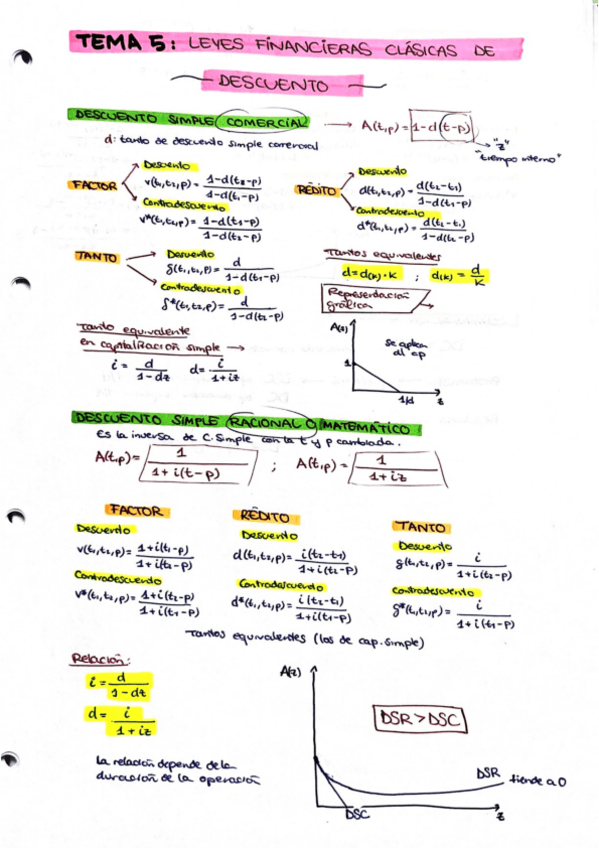 TEMA 5: LEYES FINANCIERAS CLÁSICAS DE
DESCUENTO
DESCUENTO SIMPLE COMERCIAL → A(t,p) = 1-d(t-p)
"z"
"tiempo interno"
d: tanto de descuento simple comercial
FACTOR
Descuento
v(t₁,t₂,p) = 1-d(t₂-p) / 1-d(t₁-p)
Contradescuento
v*(t₁,t₂,p) = 1-d(t₁-p) / 1-d(t₂-p)
RÉDITO
Descuento
d(t₁,t₂,p) = d(t₂-t₁) / 1-d(t₁-p)
Contradescuento
d*(t₁,t₂,p) = d(t₂-t₁) / 1-d(t₂-p)
TANTO
Descuento
ρ(t₁,t₂,p) = d / 1-d(t₁-p)
Contradescuento
ρ*(t₁,t₂,p) = d / 1-d(t₂-p)
Tantos equivalentes
d = d(k)·k ; d(k) = d / k
Representación
gráfica
A(z)
1
Se aplica
1/d
z
Tanto equivalente
en capitalización simple →
i = d / 1-dz d = i / 1+iz
DESCUENTO SIMPLE RACIONAL O MATEMÁTICO
Es la inversa de C. Simple con la t y p cambiada.
A(t,p) = 1 / 1+i(t-p) ; A(t,p) = 1 / 1+iz
FACTOR
Descuento
v(t₁,t₂,p) = 1+i(t₁-p) / 1+i(t₂-p)
Contradescuento
v*(t₁,t₂,p) = 1+i(t₂-p) / 1+i(t₁-p)
RÉDITO
Descuento
d(t₁,t₂,p) = i(t₂-t₁) / 1+i(t₂-p)
Contradescuento
d*(t₁,t₂,p) = i(t₂-t₁) / 1+i(t₁-p)
TANTO
Descuento
ρ(t₁,t₂,p) = i / 1+i(t₂-p)
Contradescuento
ρ*(t₁,t₂,p) = i / 1+i(t₁-p)
Tantos equivalentes (los de cap. simple)
Relación:
i = d / 1-dz
d = i / 1+iz
La relación depende de la
duración de la operación
A(z)
DSR > DSC
DSR tiende a 0
DSC
z